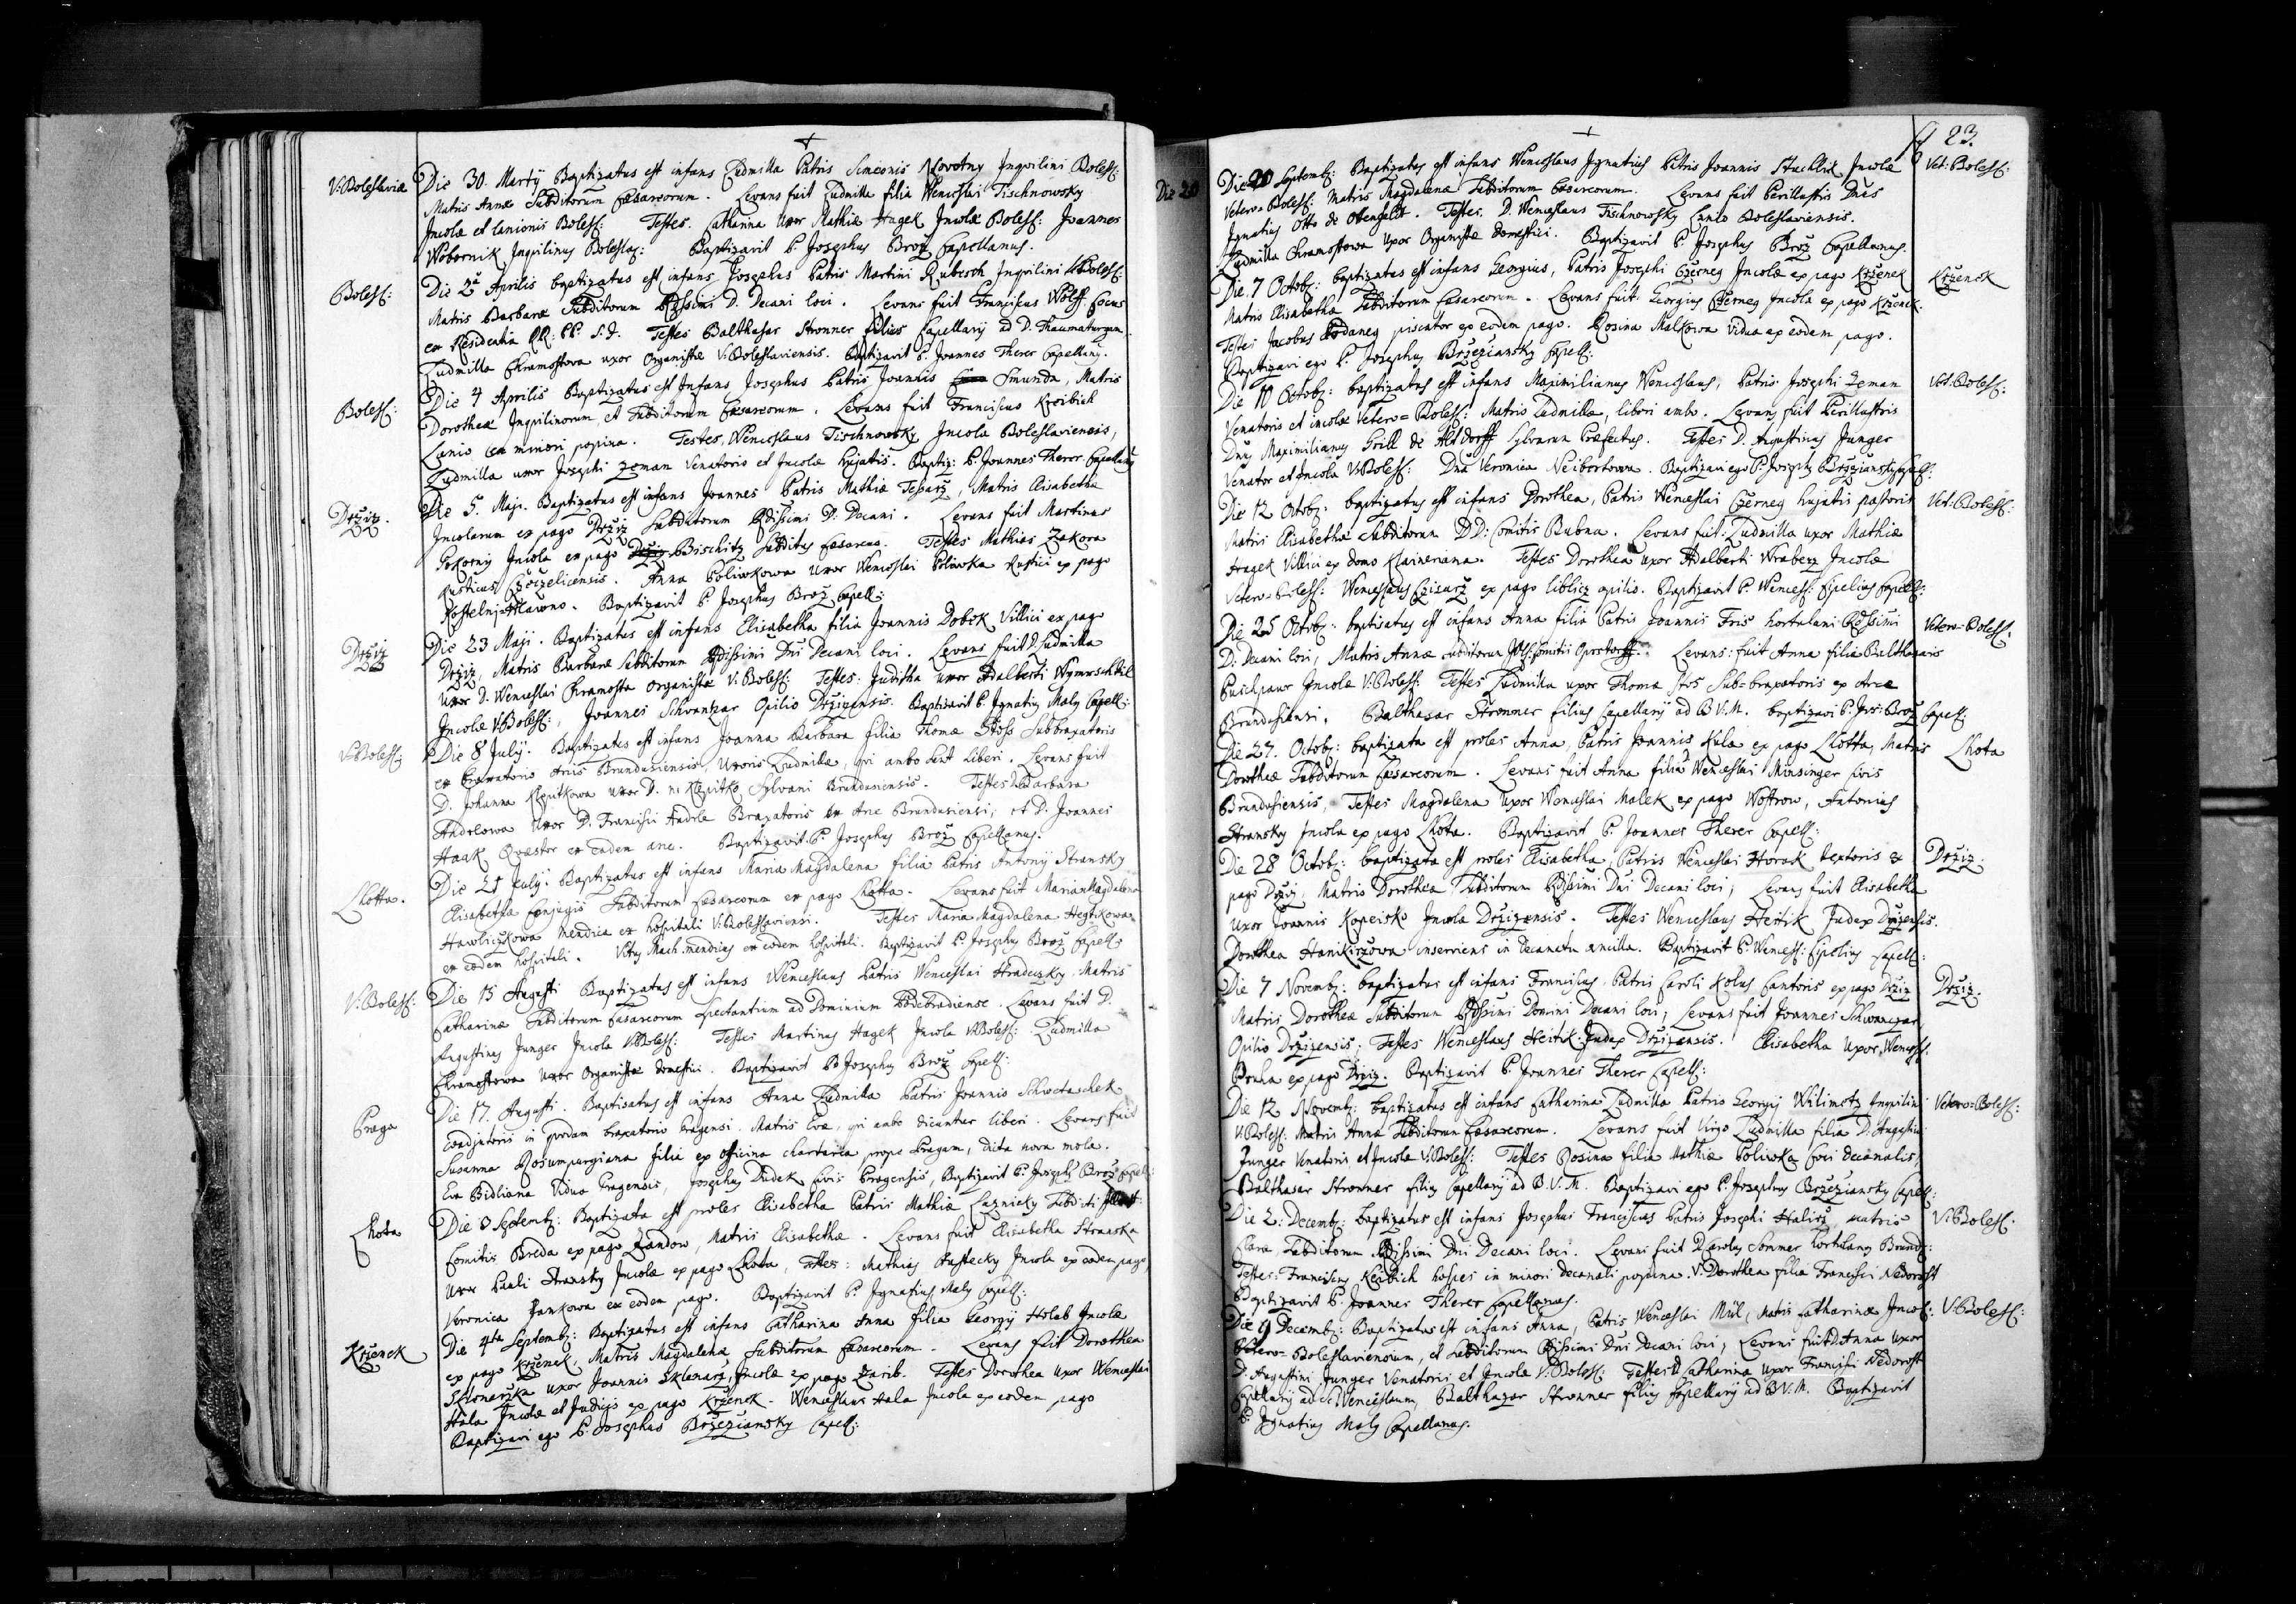 V: Boleslaviæ
Die 30. Martÿ Baptizatus est infans Ludmilla Patris Simeonis Novotny Inquilini Bolesl:
Matris Annæ Subditorum Cæsareorum. Levans fuit Ludmilla filia Wenceslai Tischnowsky
Incolæ et lanionis Bolesl: Testes. Catharina Uxor Mathiæ Hagek Incolæ Bolesl: Joannes
Wobornik Inquilinus Boleslav: Baptizavit P. Josephus Brož Capellanus.
Bolesl:
Die 2ª Aprilis baptizatus est infans Josephus Patris Martini Rubesch Inquilini V:Bolesl:
Matris Barbaræ Subditorum Rdissimi D. Decani loci. Levans fuit Franciscus Wolff Cocus
ex Residentia RR: PP. S.J. Testes Balthasar Stronner filius Capellarij ad D. Thaumaturgam.
Ludmilla Chramostowa uxor Organistæ V:Boleslaviensis. Baptizavit P. Joannes Therer Capellang.
Bolesl:
Die 4 Aprilis Baptizatus est Infans Josephus Patris Joannis Smunda, Matris
Dorotheæ Inquilinorum et Subditorum Cæsareorum. Levans fuit Franciscus Kreibich
Lanio in minori popina. Testes, Wenceslaus Tischnowsky Incola Boleslaviensis,
Ludmilla uxor Josephi Zeman Venatoris et Incolæ hujatis. Baptiz: P. Joannes Therer Capellang
Držiz.
Die 5. Maji. Baptizatus est infans Joannes Patris Mathiæ Tessarž, Matris Elisabetha
Incolarum ex pago Držiz Subditorum Rdissimi D. Decani. Levans fuit Martinus
Pokorny Incola ex pago Bischitz Subditus Cæsareus. Testes Mathias Zakora
Rusticus Czeczelicensis. Anna Poliwkowa Uxor Wenceslai Poliwka Rustici ex pago
Kostelnjhlawno. Baptizavit P. Josephus Brož Capell:
Držiz
Die 23 Maji. Baptizatus est infans Elisabetha filia Joannis Dobek Villici ex pago
Držiz, Matris Barbaræ Subditorum Rdissimi Dni Decani loci. Levans fuit D. Ludmilla
Uxor D. Wenceslai Chramosta Organistæ V:Bolesl: Testes: Juditha uxor Adalberti Wymrschkil
Incolæ V:Bolesl:, Joannes Schwantzar Opilio Držizensis. Baptizavit P. Ignatius Maly Capell:
V:Bolesl:
Die 8 Julÿ. Baptizatus est infans Joanna Barbara filia Thomæ Stoss Subbraxatoris
ex Braxatorio Arcis Brandusiensis, Uxoris Ludmillæ, qui ambo sunt liberi. Levans fuit
D. Johanna Klepitkowa uxor D. Klepitko Sylvani Brandusiensis. Testes D. Barbara
Andrlowa Uxor D. Francisci Andrle Braxatoris in Arce Brandusiensi, et D. Joannes
Haak Quæstor ex eadem arce. Baptizavit P. Josephus Brož Capellanus.
Lhotta.
Die 21 July. Baptizatus est infans Maria Magdalena filia Patris Antonÿ Stransky
Elisabetha Conjugis Subditorum Cæsareorum ex pago Lhotta. Levans fuit Maria Magdalena
Hawliczkowa Mendica ex hospitali V:Boleslaviensi. Testes Maria Magdalena Hegtkowa
ex eodem hospitali. Vitus Mach mendicus ex eodem hospitali. Baptizavit P. Josephus Brož Capell:
V: Bolesl:
Die 15 Augusti Baptizatus est infans Wenceslaus Patris Wenceslai Hradeczky Matris
Catharinæ Subditorum Cæsareorum Spectantium ad Dominium Podebradiense. Levans fuit D.
Augustinus Junger Incola V:Bolesl: Testes Martinus Hagek Incola V:Bolesl: Ludmilla
Chramostowa Uxor Organistæ domestici. Baptizavit P. Josephus Brož Capell:
Praga
Die 17. Augusti. Baptisatus est infans Anna Ludmilla Patris Joannis Schwetaschek
coadjutoris in quodam braxatorio Pragensi. Matris Evæ, qui ambo dicuntur liberi. Levans fuit
Susanna Rosumpurgiana filia ex officina chartarea prope Pragam, dicta nova mola.
Eva Bidliana Vidua Pragensis, Josephus Dudek Civis Pragensis, Baptizavit P. Josephus Brož Capell:
Lhota
Die 3 Septemb: Baptizata est proles Elisabetha Patris Mathiæ Lazniczky Subditi
Comitis Breda ex pago Landow, Matris Elisabethæ. Levans fuit Elisabetha Stranska
Uxor Pauli Stransky Incolæ ex pago Lhota, Testes: Mathias Hustecky Incola ex eodem pago,
Veronica Jankowa ex eodem pago. Baptizavit P. Ignatius Maly Capell:
Krženek
Die 4ta Septemb: Baptizatus est infans Catharina Anna filia Georgÿ Holab Incolæ
ex pago Krženek, Matris Magdalenæ Subditorum Cæsareorum. Levans fuit Dorothea
Sklenaržka uxor Joannis Sklenarž, Incolæ ex pago Zarib. Testes Dorothea uxor Wenceslai
Hala Incolæ et Judicis ex pago Krženek. Wenceslaus Hala Incola ex eodem pago
Baptizavi ego P. Josephus Bržeziansky Capell:
Die 20
23
Vet: Bolesl:
Die 20 Septemb: Baptizatus est infans Wenceslaus Ignatius Patris Joannis Stuchlik Incolæ
Vetero-Bolesl: Matris Magdalenæ Subditorum Cæsareorum. Levans fuit Perillustris Dnus
Ignatius Otto de Ottengrün. Testes. D. Wenceslaus Tischnowsky Lanio Boleslaviensis.
Ludmilla Chramostowa Uxor Organistæ domestici. Baptizavit P. Josephus Brož Capellanus.
Krženek
Die 7 Octob: baptizatus est infans Georgius, Patris Josephi Czerneg Incolæ ex pago Krženek
Matris Elisabethæ Subditorum Cæsareorum. Levans fuit Georgius Czerneg Incola ex pago Krženek
Testes Jacobus Podaneg piscator ex eodem pago. Rosina Malkowa vidua ex eodem pago.
Baptizavi ego P. Josephus Bržeziansky Capell:
Vet: Bolesl:
Die 10 Octob: baptizatus est infans Maximilianus Wenceslaus, Patris Josephi Zeman
Venatoris et incolæ Vetero-Bolesl: Matris Ludmillæ, liberi ambo. Levans fuit Perillustris
Dnus Maximilianus Grill de Altdorff Sylvarum Præfectus. Testes D. Augustinus Junger
Venator et Incola V:Bolesl: Dna Veronica Neibortowa. Baptizavi ego P. Joseph Bržeziansky Capell:
Vet: Bolesl:
Die 12 Octob: baptizatus est infans Dorothea, Patris Wenceslai Czerneg hujatis pastoris
Matris Elisabethæ Subditorum D.D. Comitis Bubna. Levans fuit: Ludmilla uxor Mathiæ
Hagek Villici ex domo Klaineriana. Testes Dorothea uxor Adalberti Wrabetz Incolæ
Vetero-Bolesl: Wenceslaus Czisarž ex pago Liblicz opilio. Baptizavit P. Wencesl: Cipelius Capell:
Vetero-Bolesl:
Die 25 Octob: baptisatus est infans Anna filia Patris Joannis Fris hortulani Rdissimi
D. Decani loci, Matris Annæ Subditorum Comitis Operstorff. Levans: fuit Anna filia Balthasaris
Puschpaur Incolæ V:Bolesl: Testes Ludmilla uxor Thomæ Stos Sub-braxatoris ex Arce
Brandusiensi. Balthasar Stronner filius Capellarÿ ad B.V.M. baptizavi P. Jos: Brož Capell:
Lhota
Die 27. Octob: baptizata est proles Anna, Patris Joannis Kula ex pago Lhotta, Matris
Dorotheæ Subditorum Cæsareorum. Levans fuit Anna filia Wenceslai Minsinger Civis
Brandusiensis, Testes Magdalena Uxor Wenceslai Malek ex pago Wostrow, Antonius
Stransky Incola ex pago Lhota. Baptizavit P. Joannes Therer Capell:
Držiz.
Die 28 Octob: baptizata est proles Elisabetha, Patris Wenceslai Horak textoris ex
pago Držiz, Matris Dorotheæ Subditorum Rdissimi Dni Decani loci; Levans fuit Elisabetha
Uxor Joannis Kopeisko Incola Držizensis. Testes Wenceslaus Heitik Judex Držizensis.
Dorothea Hanikiržowa inserviens in decanatu ancilla. Baptizavit P. Wencesl: Cipelius Capell:
Držiz.
Die 7 Novemb: baptizatus est infans Franciscus, Patris Caroli Kolus Cantoris ex pago Držiz
Matris Dorotheæ Subditorum Rdissimi Domini Decani loci, Levans fuit Joannes Schwanczar
Opilio Držizensis. Testes Wenceslaus Heitik Judex Držizensis. Elisabetha Uxor Wencesl:
Bouha ex pago Držiz. Baptizavit P. Joannes Therer Capell:
Vetero-Bolesl:
Die 12 Novemb: baptizatus est infans Catharina Ludmilla Patris Georgÿ Wilimetz Inquilini
V:Bolesl: Matris Annæ Subditorum Cæsareorum. Levans fuit Virgo Ludmilla filia D. Augustini
Junger Venatoris et Incolæ V:Bolesl: Testes Rosina filia Mathiæ Poliwka Coci decanalis,
Balthasar Stronner filius Capellarÿ ad B.V.M. Baptizavi ego P. Josephus Bržeziansky Capell:
V:Bolesl:
Die 2: Decemb: baptizatus est infans Josephus Franciscus Patris Josephi Halirž, matris
Claræ Subditorum Rdissimi Dni Decani loci. Levans fuit D. Carolus Sommer hortulanus Brand:
Testes: Franciscus Kreibich hospes in minori decanali popina. V: Dorothea filia Francisci Nedorost
Baptizavit P. Joannes Therer Capellanus.
V:Bolesl:
Die 9 Decemb: Baptizatus est infans Anna, Patris Wenceslai Mül, Matris Catharinæ Incol:
Vetero-Boleslaviensium, et Subditorum Rdissimi Dni Decani loci; Levans fuit D. Anna uxor
D. Augustini Junger Venatoris et Incolæ V:Bolesl: Testes D. Catharina uxor Francisci Nedorost
Capellarÿ ad S. Wenceslaum, Balthazar Stronner filius Capellarÿ ad B.V.M. Baptizavit
P. Ignatius Maly Capellanus.